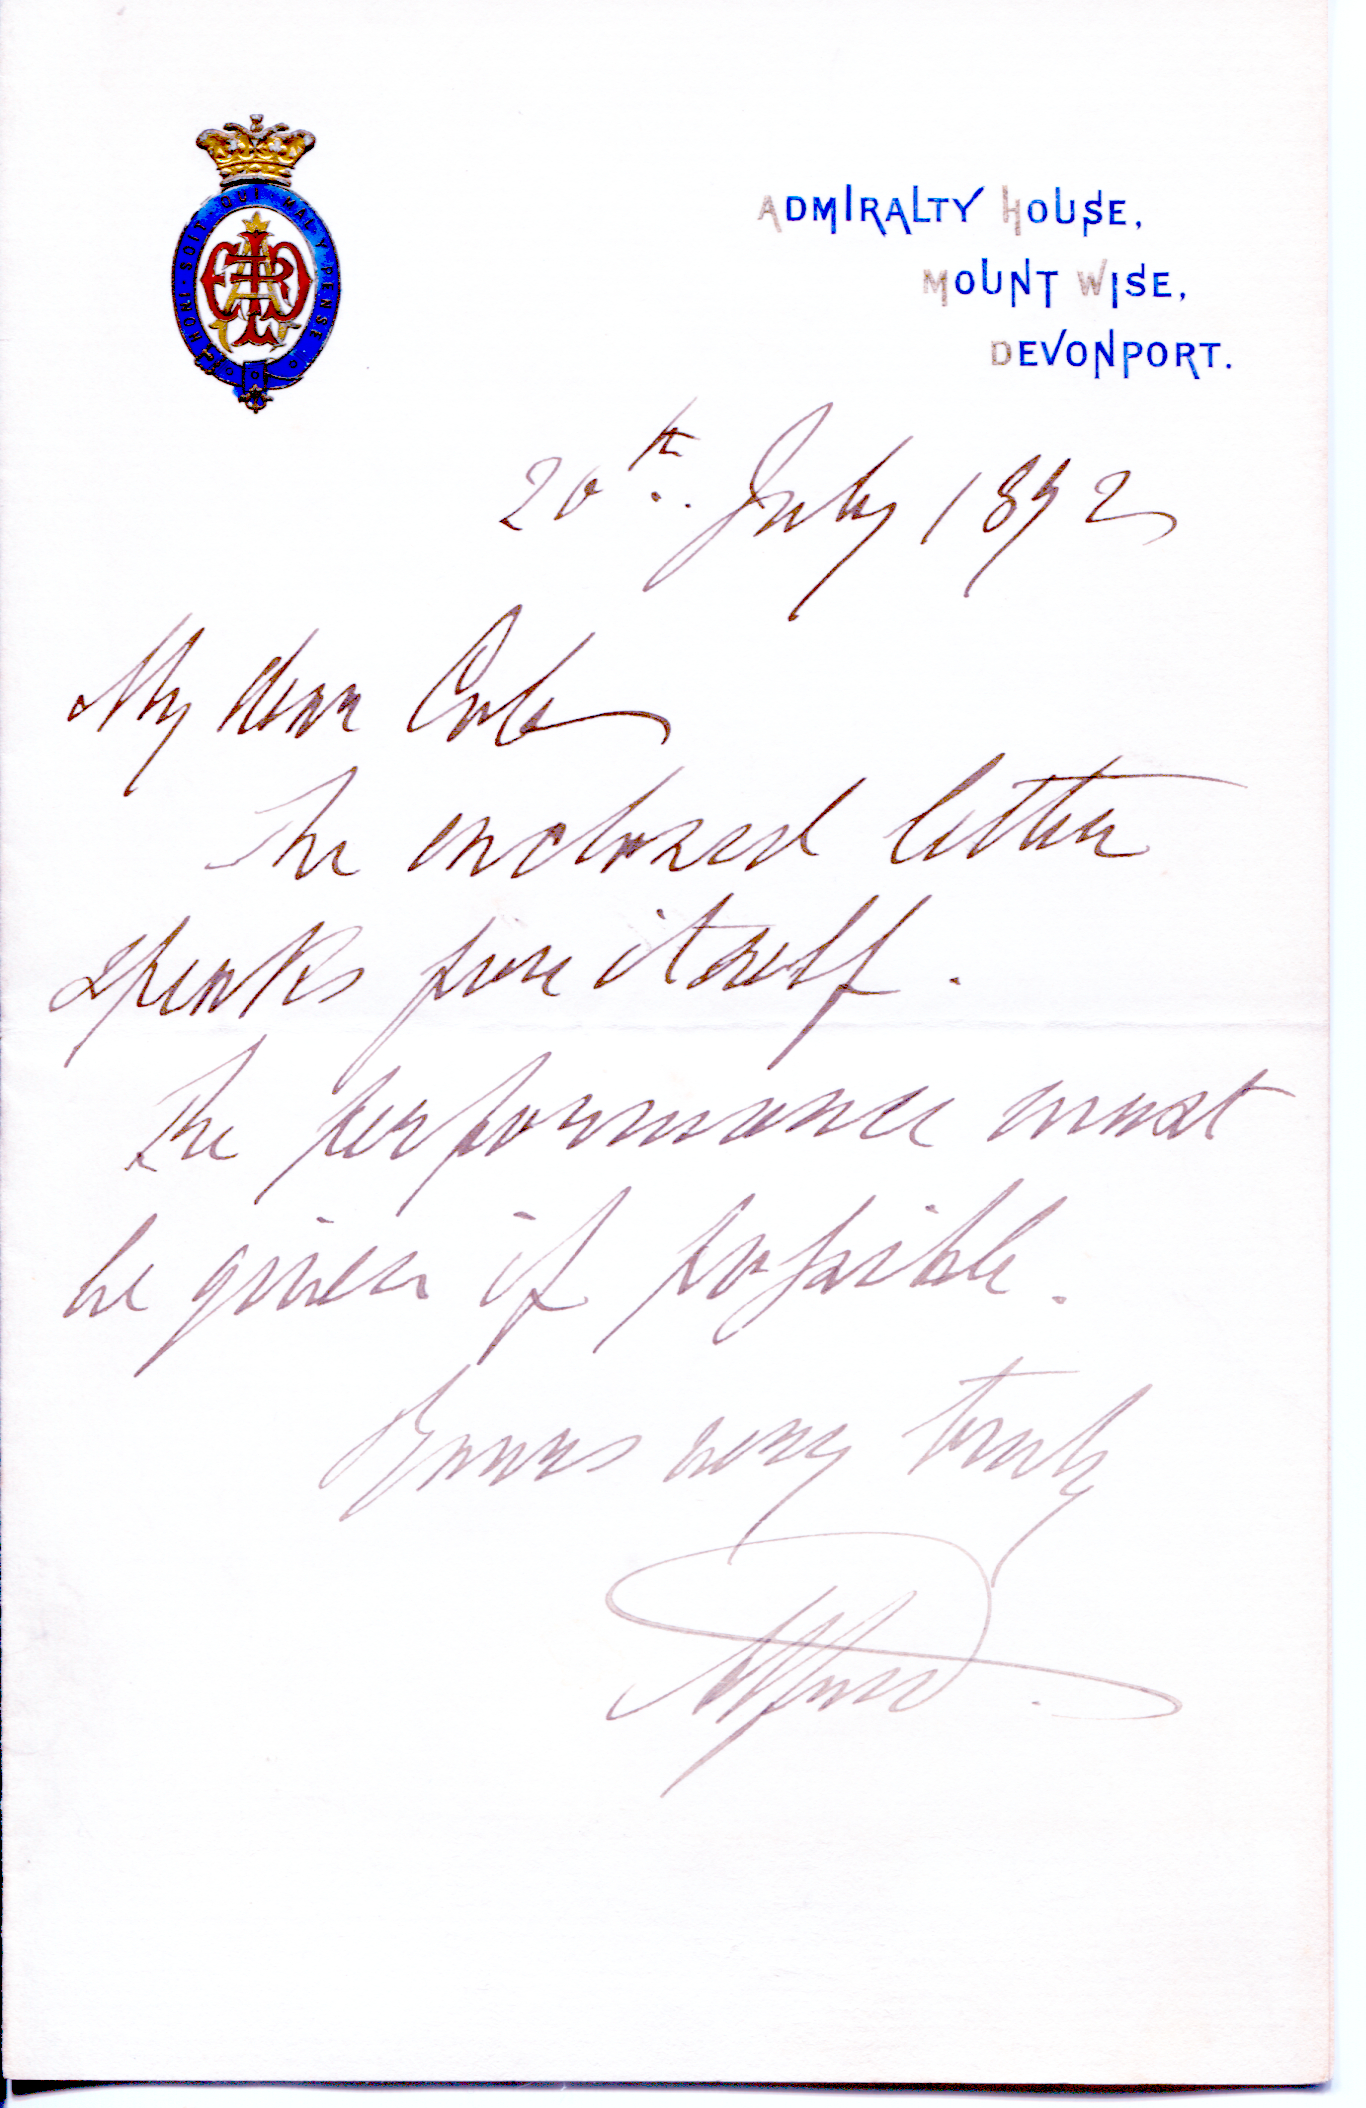 HONI · SOIT · QUI · MAL · Y · PENSE
ADMIRALTY HOUSE,
MOUNT WISE,
DEVONPORT.
20th. July 1892
My dear Cole
The enclosed letter
speaks for itself.
The performance must
be given if possible.
Yours very truly
Alfred